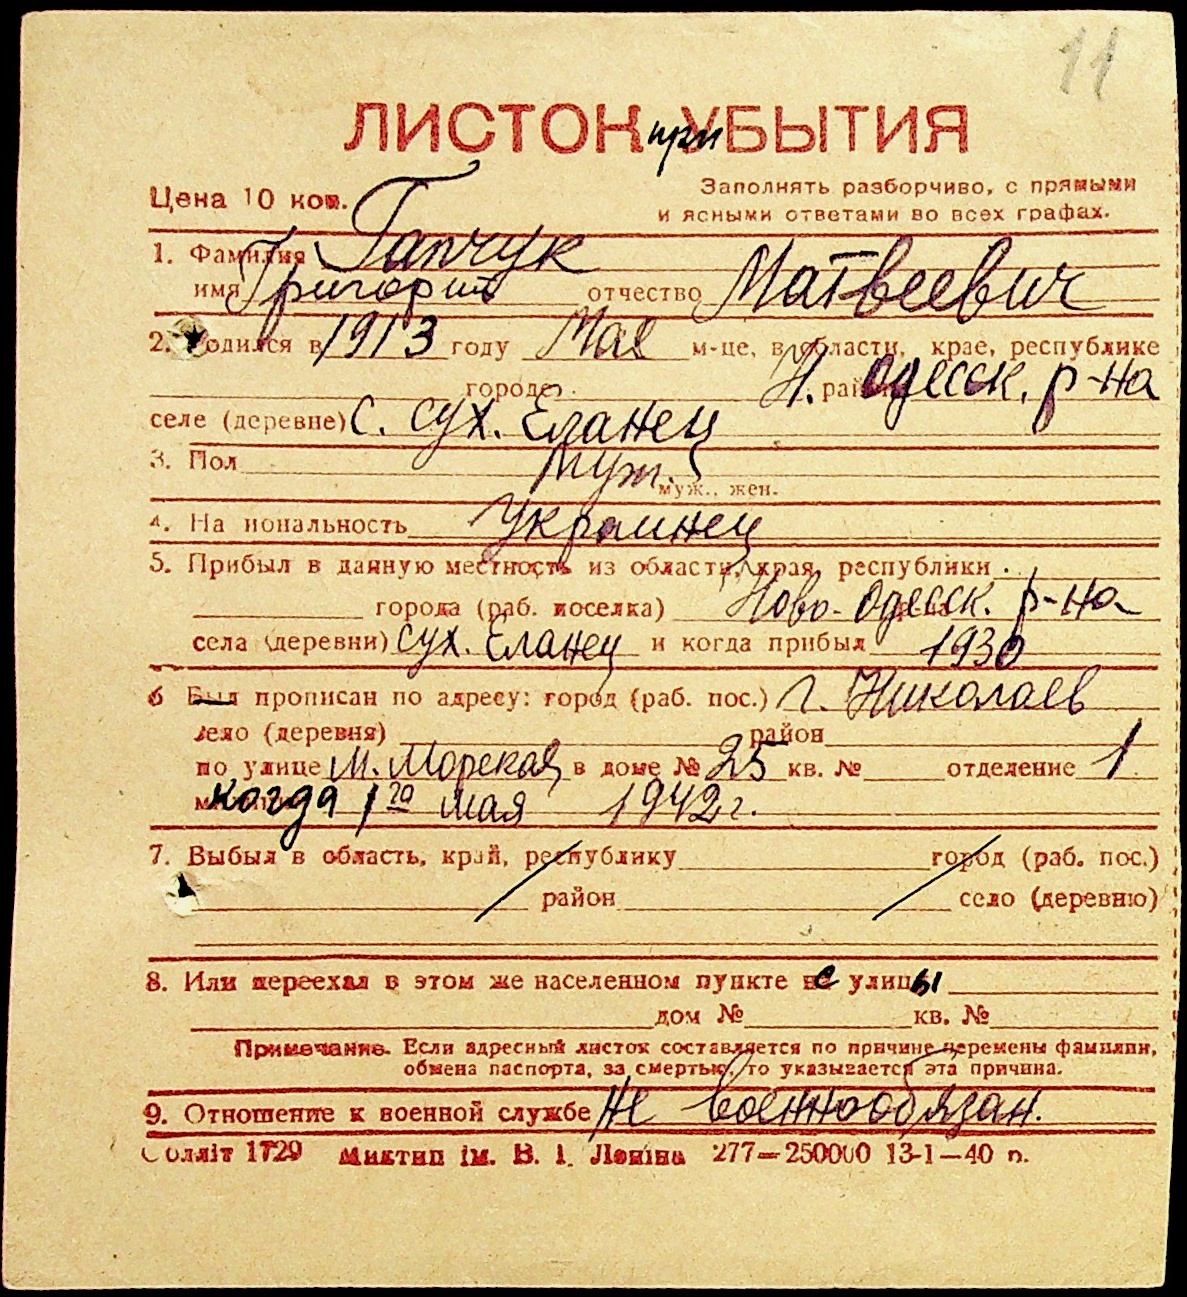 11
ЛИСТОК при УБЫТИЯ
Цена 10 коп.
Заполнять разборчиво, с прямыми
и ясными ответами во всех графах.
1. Фамилия Гапчук
имя Григорий отчество Матвеевич
2. Родился в 1913 году Мае м-це, в области, крае, республике
городе Н. Одесск. р-на
селе (деревне) с. Сух. Еланец
3. Пол Муж.
муж., жен.
4. На иональность Украинец
5. Прибыл в данную местность из области, края, республики
города (раб. поселка) Ново-Одесск. р-на
села (деревни) Сух. Еланец и когда прибыл 1930
6 Был прописан по адресу: город (раб. пос.) г. Николаев
село (деревня) район
по улице М. Морская в доме № 25 кв. № отделение 1
когда 1го мая 1942 г.
7. Выбыл в область, край, республику город (раб. пос.)
район село (деревню)
8. Или переехал в этом же населенном пункте с улицы
дом № кв. №
Примечание. Если адресный листок составляется по причине перемены фамилии,
обмена паспорта, за смертью, то указывается эта причина.
9. Отношение к военной службе Не военнообязан.
Соллiт 1729 Миктип iм. В. I. Ленiна 277—250000 13-1—40 п.